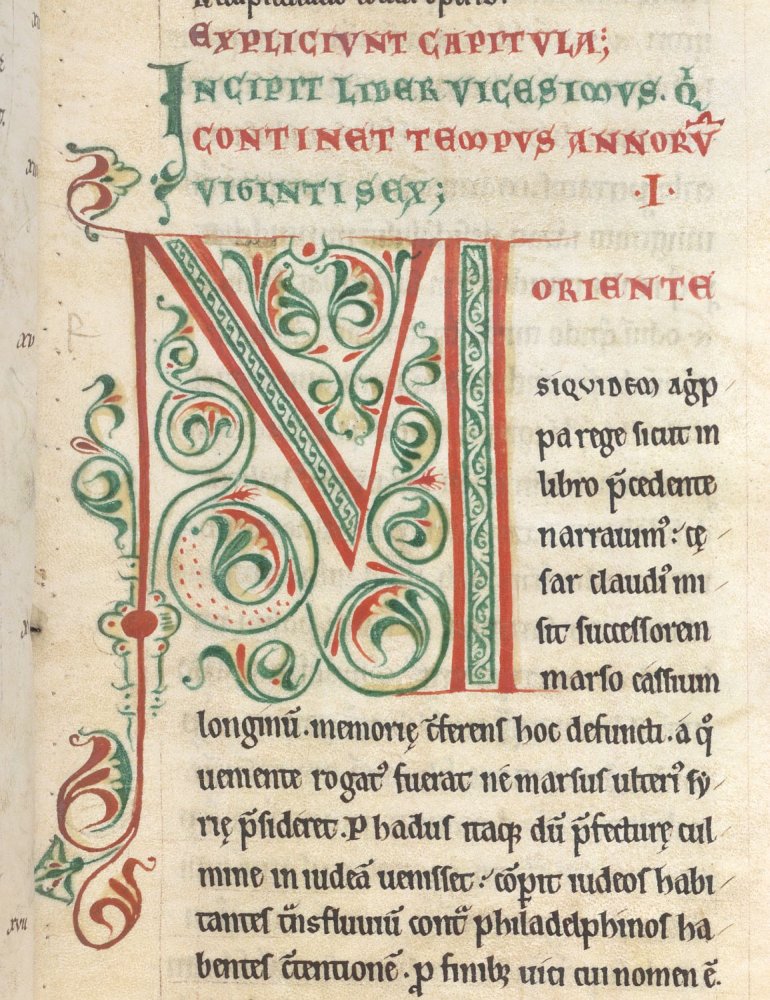 EXPLICIUNT CAPITULA;
INCIPIT LIBER VICESIMVS. Q͛
CONTINET TEMPVS ANNORV̄
VIGINTI SEX; ·I·
MORIENTE
SIQVIDEM ag̾p
pa rege sicut in
libro p̄cedente
narrauim᷒: cę
sar claudi᷒ mi
sit successorem
marso cassium
longinū. memorię c̄ferens hoc defuncti. a qͦ
uemente rogat᷒ fuerat ne marsus ulteri᷒ sy
rię p̄sideret. Phadus itaqꝫ dū p̄fecturę cul
mine in iudeā uenisset: cōꝑit iudeos habi
tantes t̄ns fluuiū cont̄ philadelphinos ha
bentes c̄tentionē. ꝓ finibꝫ uici cui nomen ē.
xv
xvii